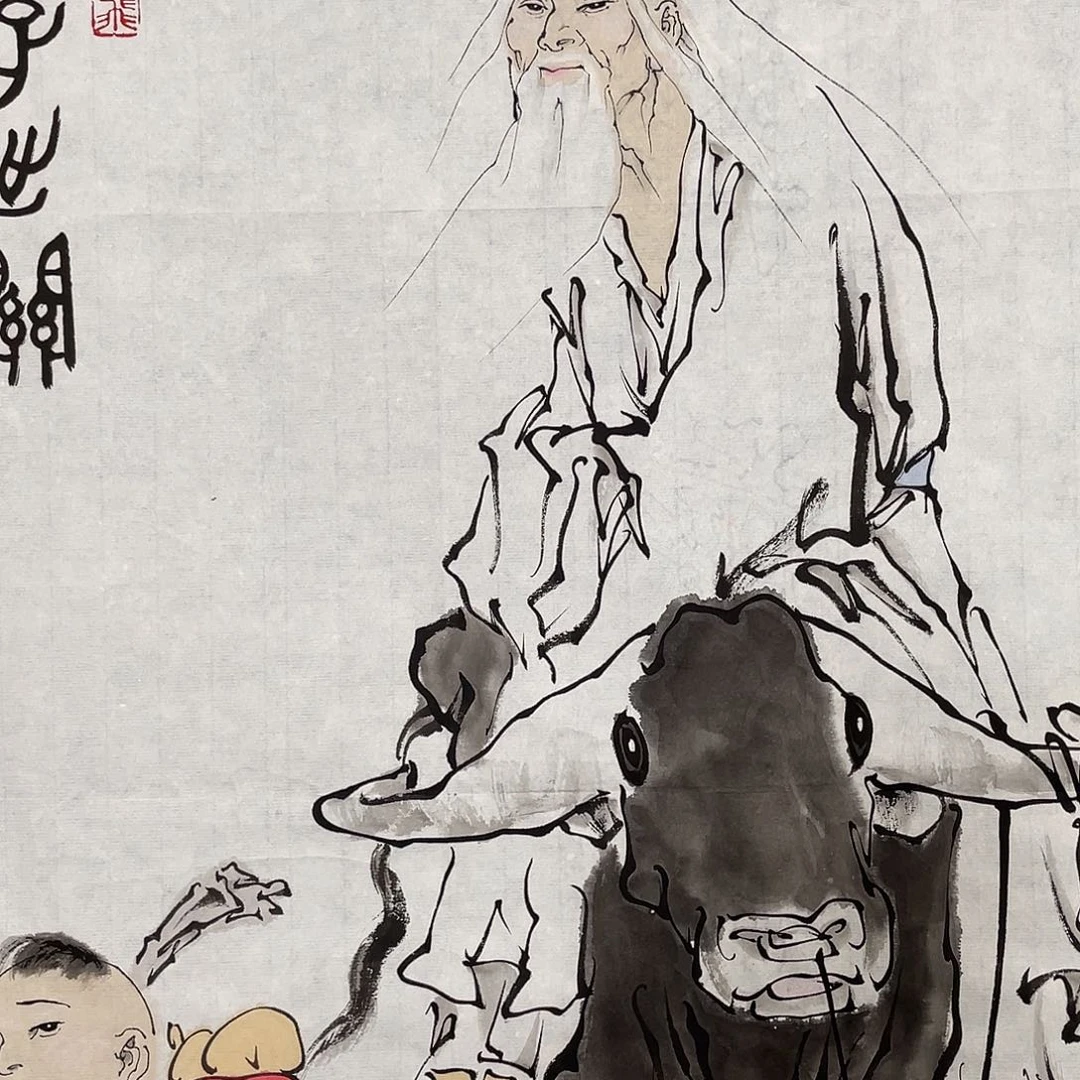 子出關